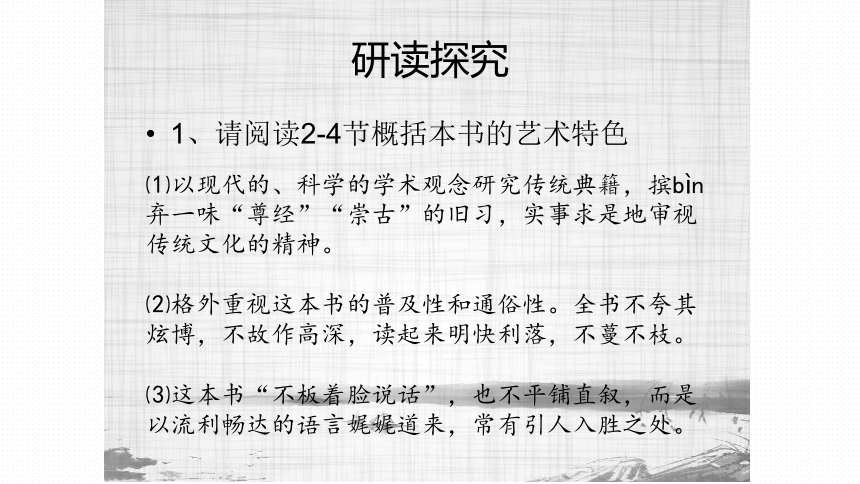 研读探究
• 1、请阅读2-4节概括本书的艺术特色
⑴以现代的、科学的学术观念研究传统典籍，摈bìn
弃一味“尊经”“崇古”的旧习，实事求是地审视
传统文化的精神。
⑵格外重视这本书的普及性和通俗性。全书不夸其
炫博，不故作高深，读起来明快利落，不蔓不枝。
⑶这本书“不板着脸说话”，也不平铺直叙，而是
以流利畅达的语言娓娓道来，常有引人入胜之处。